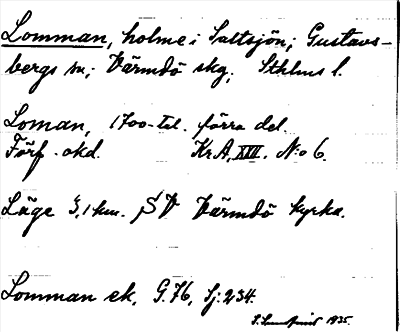 Lomman, holme i Saltsjön; Gustavs-
bergs sn; Värmdö skg; Sthlms l.
Loman, 1700-tal. förra del.
Förf. okd. Kr. A, XIII. N:o 6.
Läge 3,1 km. SV Värmdö kyrka.
Lomman ek. G.76, Sj: 234.
1935.